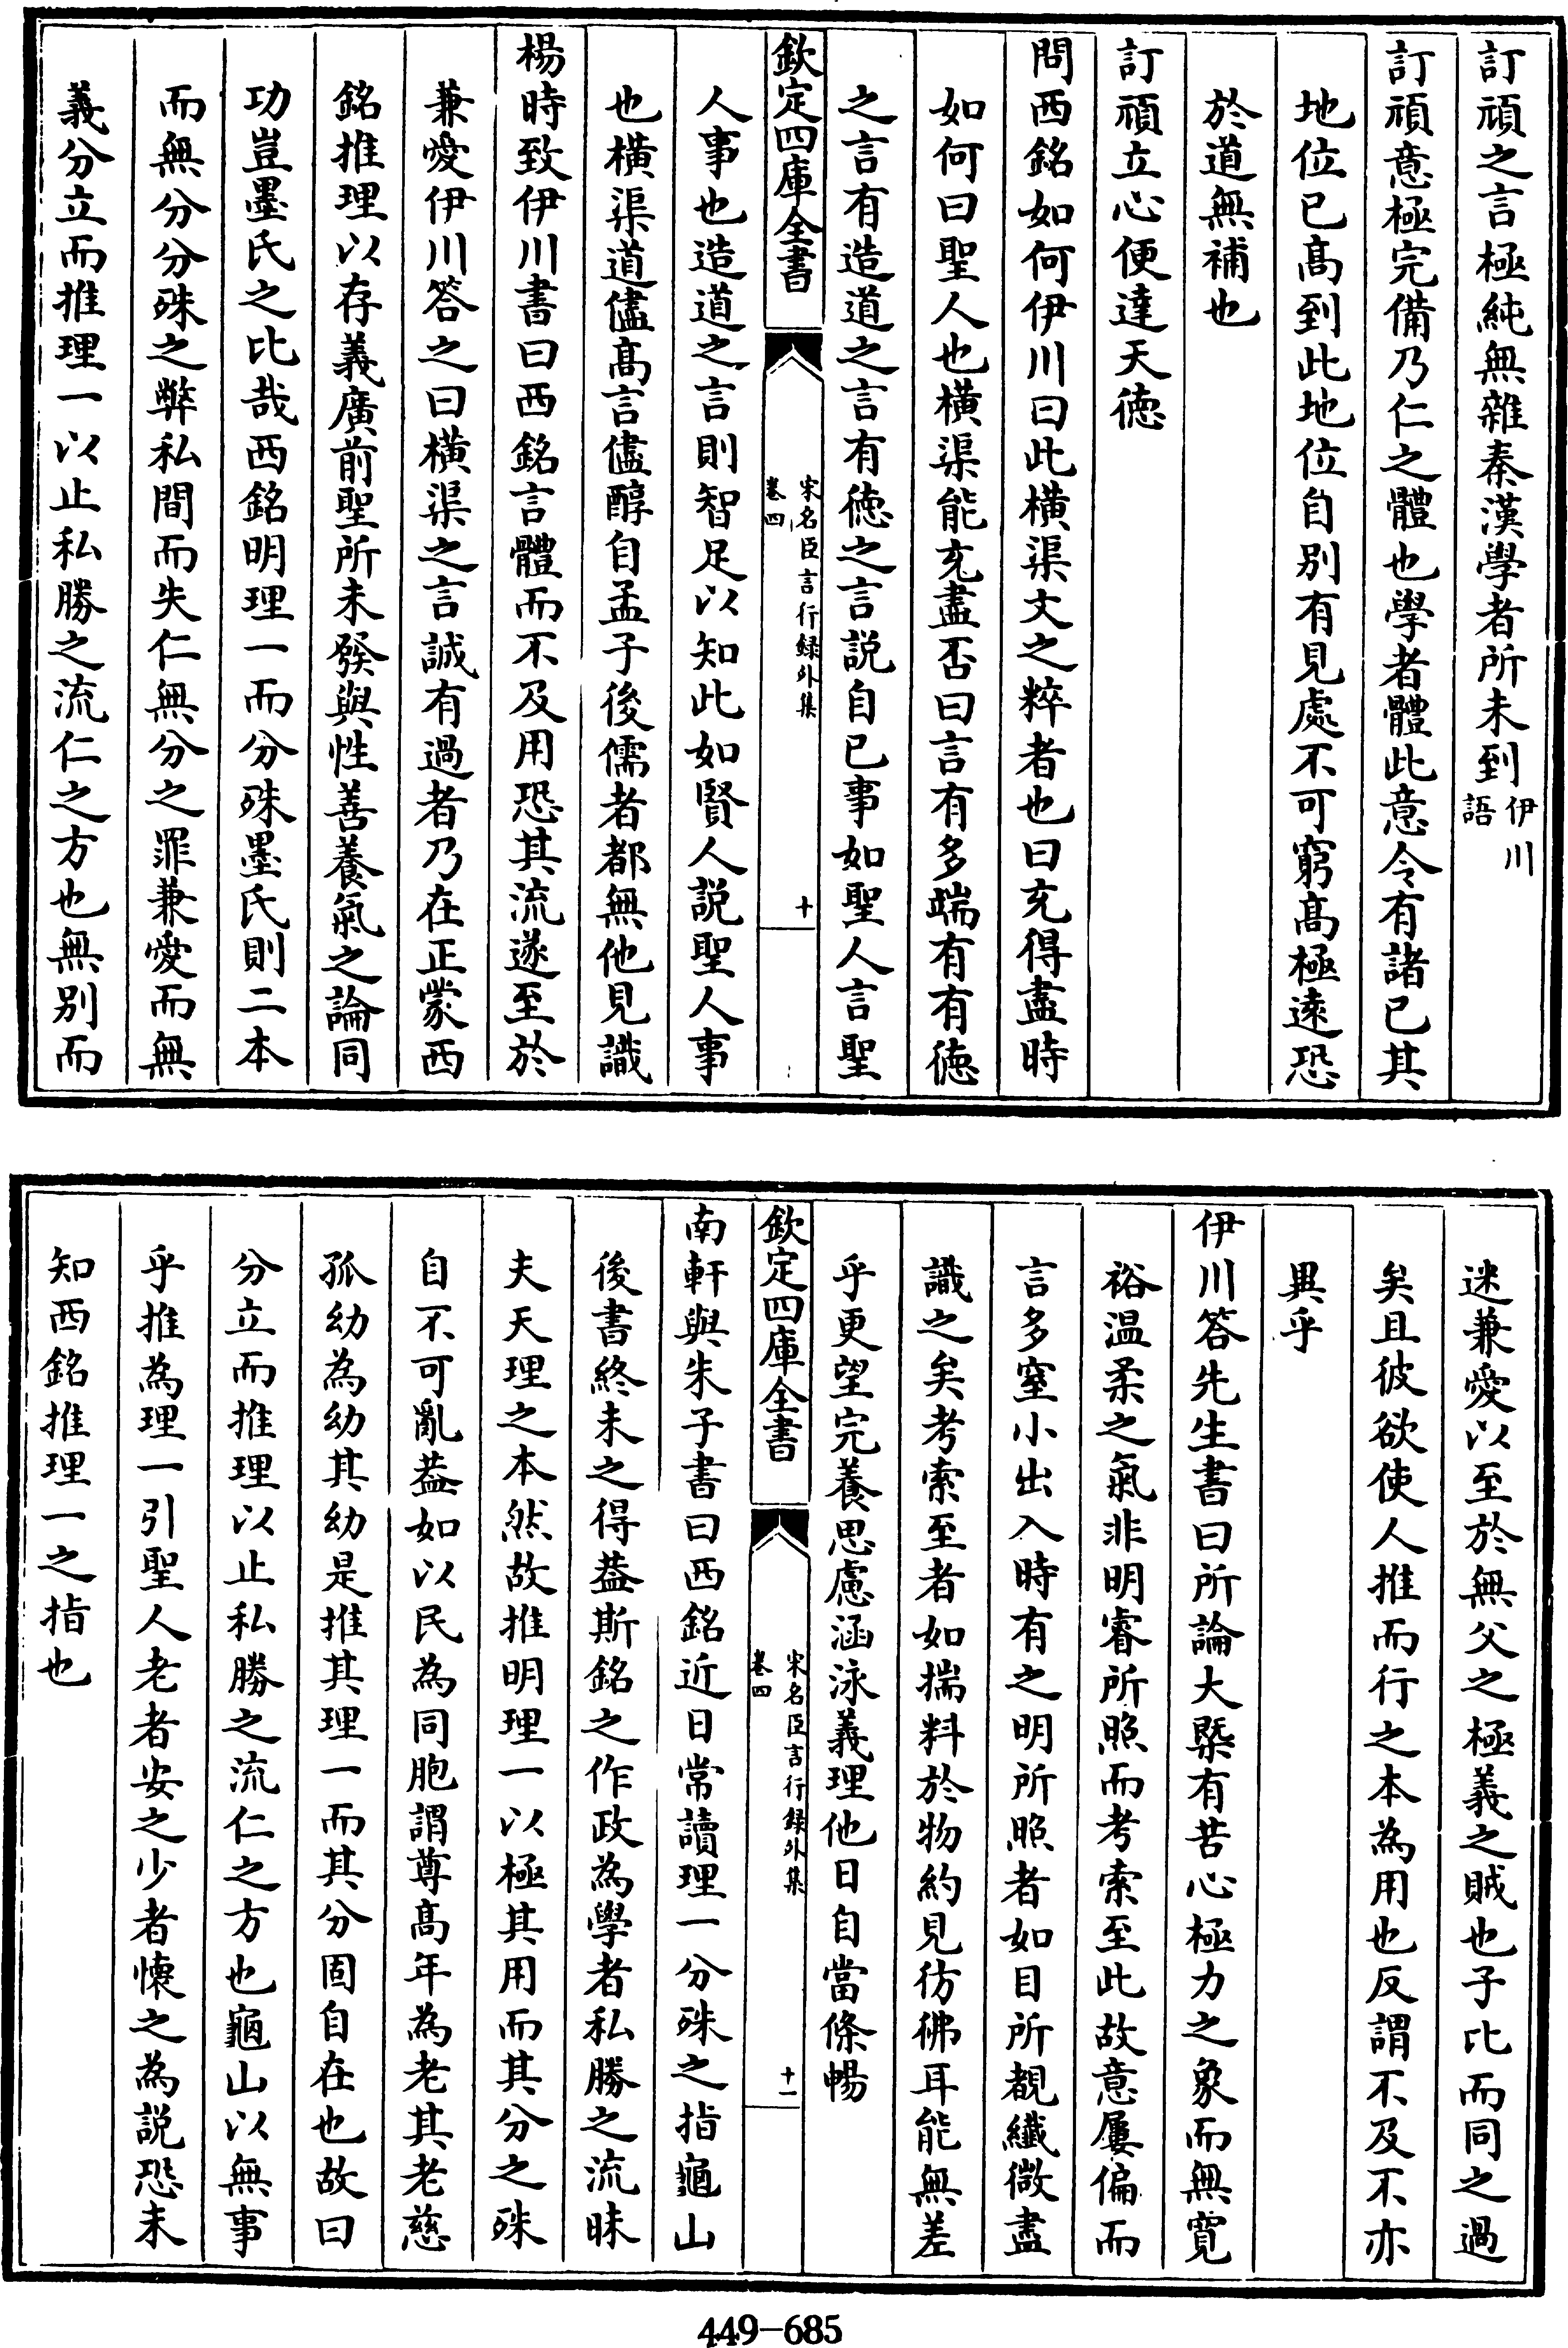 訂頑之言極純無雜秦漢學者所未到伊川語
訂頑意極完備乃仁之體也學者體此意令有諸已其
地位已髙到此地位自别有見處不可窮髙極逺恐
於道無補也
訂頑立心便達天徳
問西銘如何伊川曰此橫渠文之粹者也曰充得盡時
如何曰聖人也橫渠能充盡否曰言有多端有有徳
之言有造道之言有徳之言説自已事如聖人言聖
欽定四庫全書
宋名臣言行録外集
卷四
十
人事也造道之言則智足以知此如賢人説聖人事
也橫渠道儘髙言儘醇自孟子後儒者都無他見識
楊時致伊川書曰西銘言體而不及用恐其流遂至於
兼愛伊川答之曰橫渠之言誠有過者乃在正蒙西
銘推理以存義廣前聖所未發與性善養氣之論同
功豈墨氏之比哉西銘明理一而分殊墨氏則二本
而無分分殊之弊私間而失仁無分之罪兼愛而無
義分立而推理一以止私勝之流仁之方也無别而
迷兼愛以至於無父之極義之賊也子比而同之過
矣且彼欲使人推而行之本為用也反謂不及不亦
異乎
伊川答先生書曰所論大槩有苦心極力之象而無寛
裕温柔之氣非明睿所照而考索至此故意屢偏而
言多窒小出入時有之明所照者如目所覩纖微盡
識之矣考索至者如揣料於物約見彷彿耳能無差
乎更望完養思慮涵泳義理他日自當條暢
欽定四庫全書
宋名臣言行録外集
卷四
十一
南軒與朱子書曰西銘近日常讀理一分殊之指龜山
後書終未之得葢斯銘之作政為學者私勝之流昧
夫天理之本然故推明理一以極其用而其分之殊
自不可亂葢如以民為同胞謂尊髙年為老其老慈
孤幼為幼其幼是推其理一而其分固自在也故曰
分立而推理以止私勝之流仁之方也龜山以無事
乎推為理一引聖人老者安之少者懷之為説恐未
知西銘推理一之指也
449-685